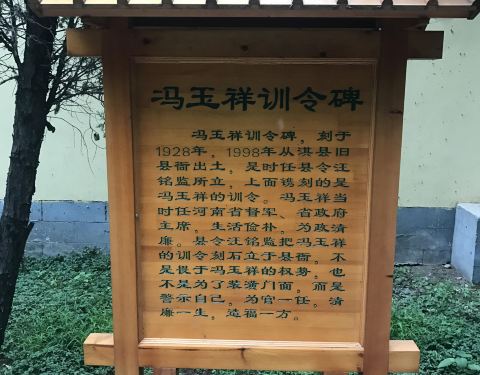 冯玉祥训令碑
冯玉祥训令碑，刻于
1928年，1998年从淇县旧
县衙出土，是时任县令汪
铭监所立，上面镌刻的是
冯玉祥的训令。冯玉祥当
时任河南省督军、省政府
主席，生活俭朴，为政清
廉。县令汪铭监把冯玉祥
的训令刻石立于县衙，不
是畏于冯玉祥的权势，也
不是为了装潢门面，而是
警示自己，为官一任，清
廉一生，造福一方。